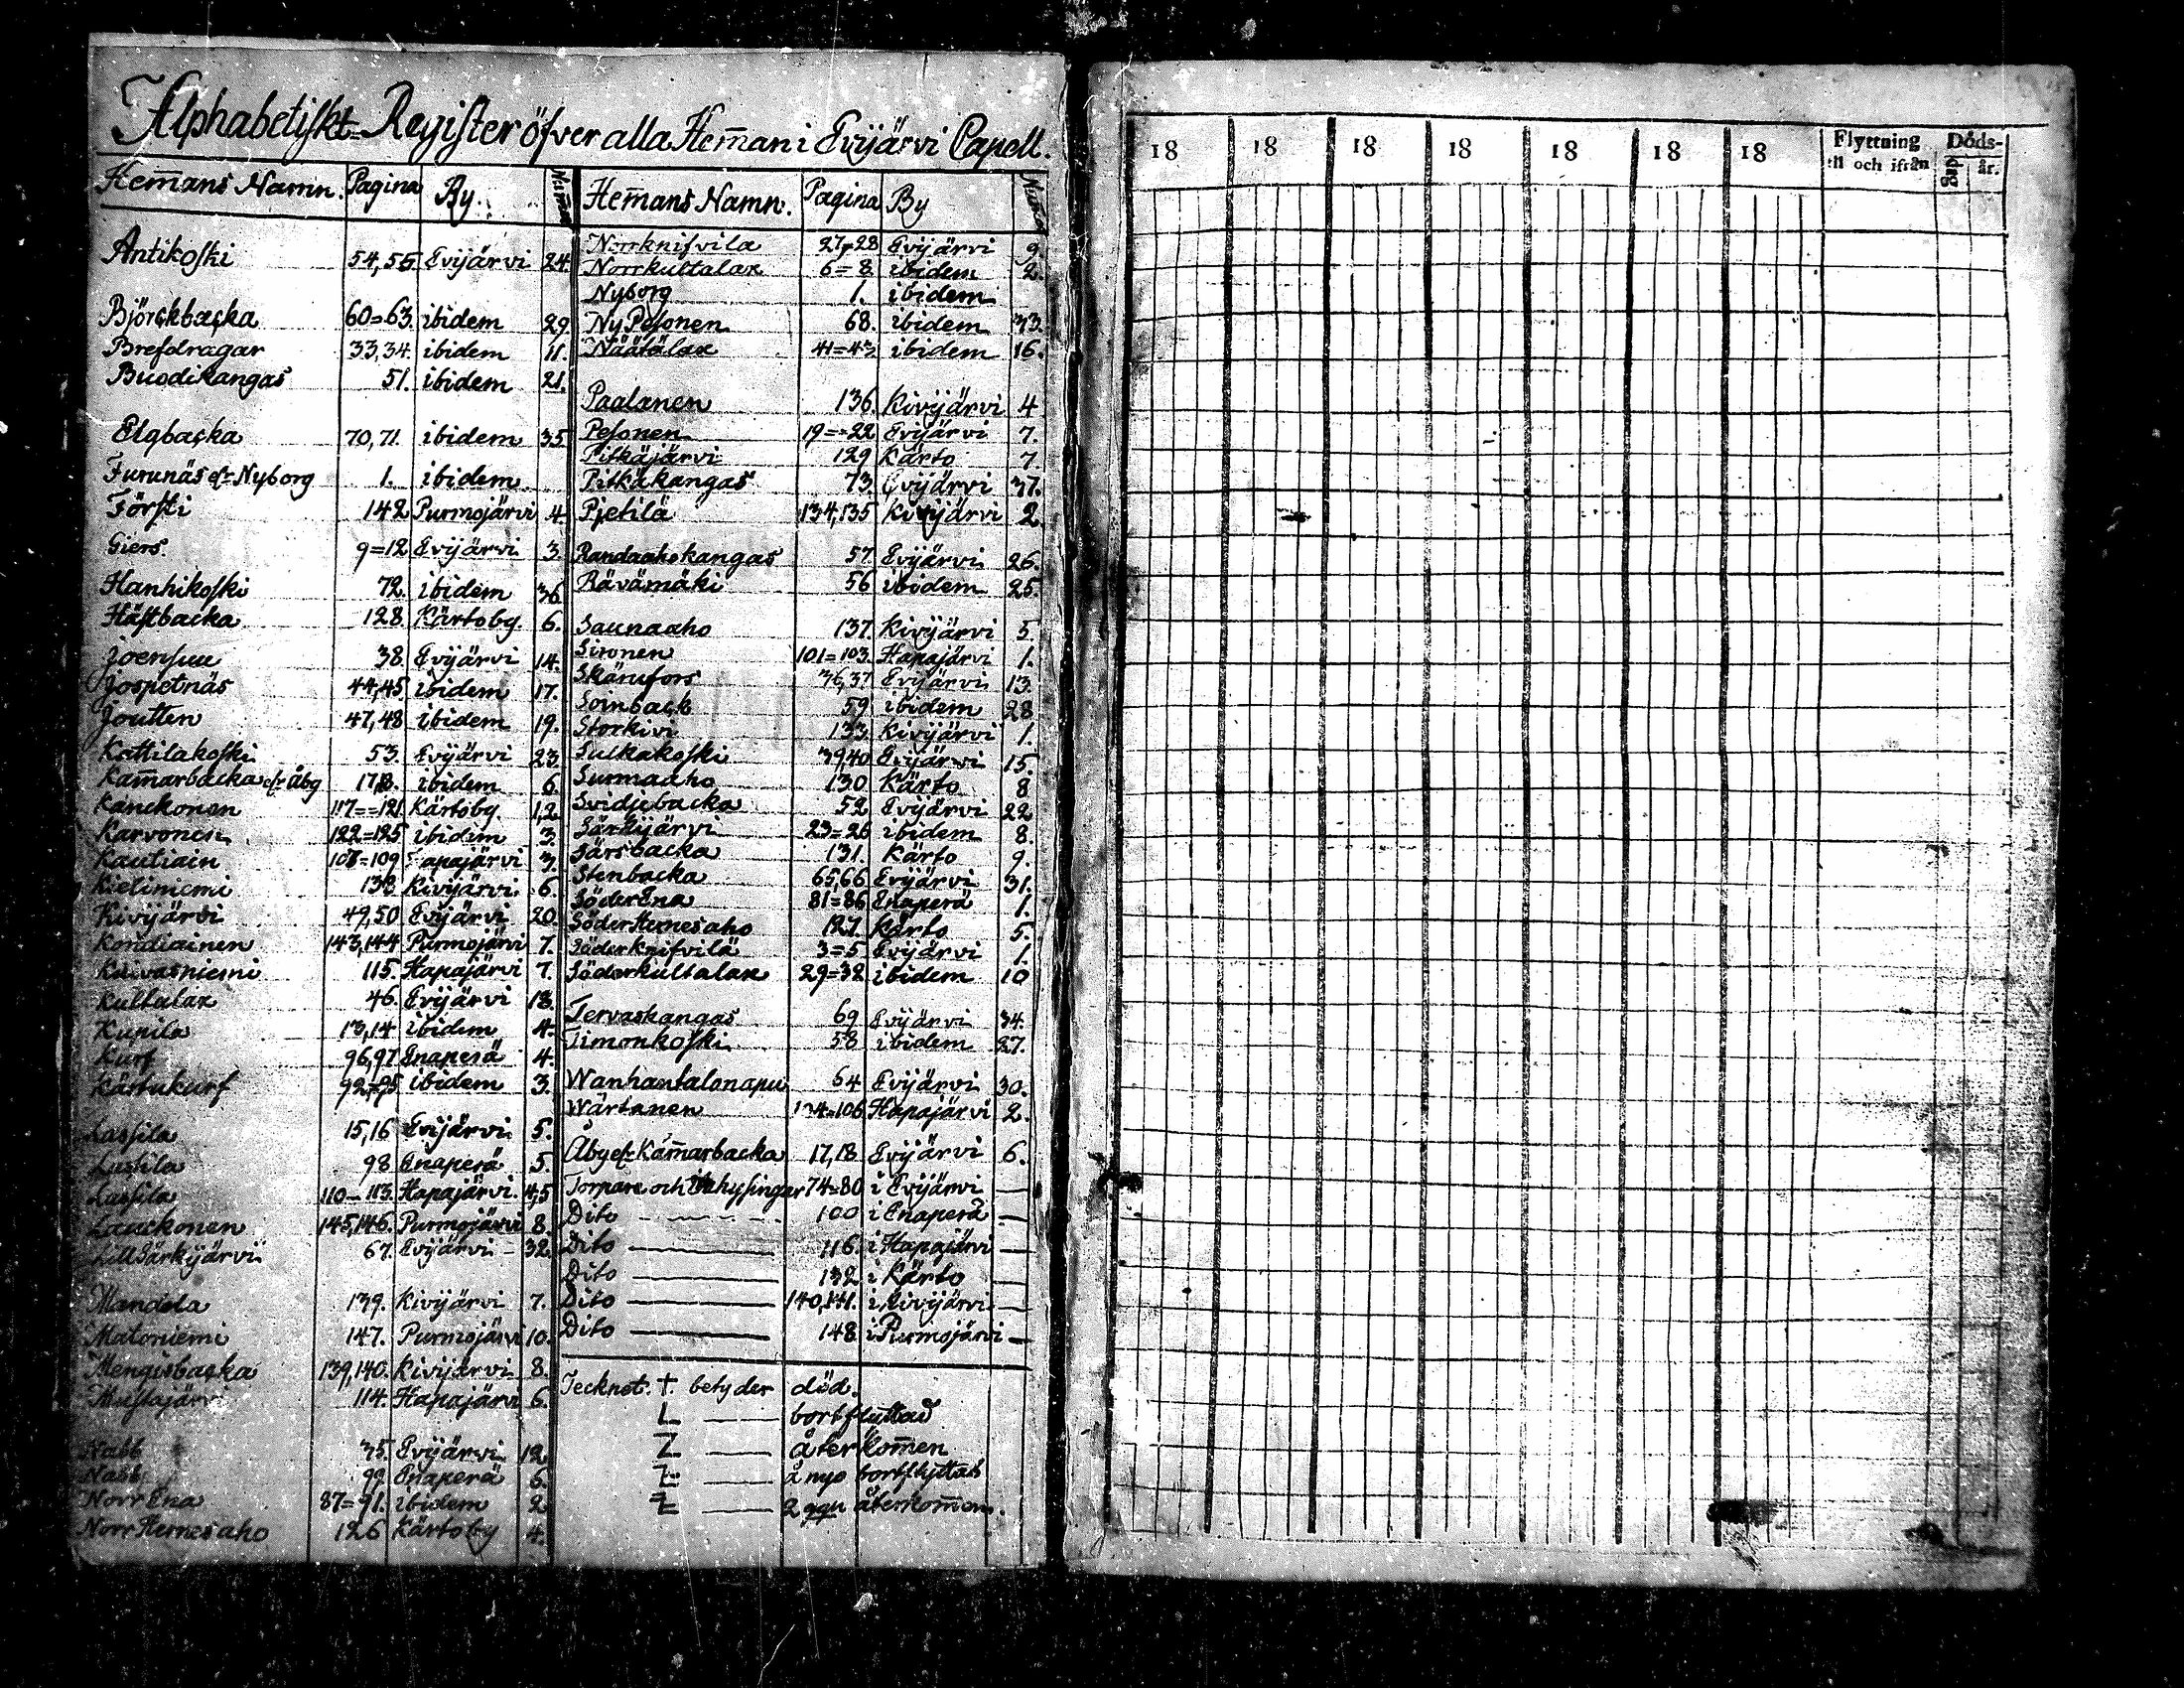 Alphabetiskt Register öfver alla Hem̄an i Evijärvi Capell.
Hem̄ans Namn. Pagina By. Num̄er
Antikoski 54,55 Evijärvi 24.
Björckbacka 60=63. ibidem 29.
Brefdragar 33,34. ibidem 11.
Buodikangas 51. ibidem 21.
Elgbacka 70,71. ibidem 35
Furunäs el. Nyborg 1. ibidem.
Försti 142 Purmojärvi 4
Giers 9=12 Evijärvi 3.
Hanhikoski 72. ibidem 36
Hästbacka 128 Kärtoby. 6.
Joensuu 38. Evijärvi 14.
Jospetnäs 44,45 ibidem 17.
Joutten 47,48 ibidem 19.
Kattilakoski 53. Evijärvi 23
Kam̄arbacka el. Åbg 17,18. ibidem 6
Kanckonen 117==121 Kärtoby. 1,2
Karvonen 122=125 ibidem 3.
Kautiain 107=109 Hapajärvi 3.
Kieliniemi 138 Kivijärvi 6.
Kivijärvi 49,50 Evijärvi 20
Kondiainen 143,144 Purmojärvi 7.
Kuivasniemi 115. Hapajärvi 7.
Kultalax 46. Evijärvi 18.
Kupila 13,14 ibidem 4.
Kurf 96,97 Enaperä 4.
Kärtukurf 92=95 ibidem 3.
Lassila 15,16 Evijärvi 5.
Lassila 98 Enaperä 5.
Lassila 110-113. Hapajärvi. 4,5
Laackonen 145,146. Purmojärvi 8
LillSärkijärvi 67. Evijärvi 32.
Mandola 139. Kivijärvi 7.
Matoniemi 147. Purmojärvi 10.
Mengisbacka 139,140. Kivijärvi 8.
Mustajärvi 114. Hapajärvi 6.
Nabb 35. Evijärvi 12
Nabb 99 Enaperä 6.
Norr Ena 87=91. ibidem 2
Norr Hernesaho 126 Kärtoby 4.
Hem̄ans Namn. Pagina By
Norrknifvila 27=28 Evijärvi 9.
Norrkultalax 6=8. ibidem 2.
Nyborg 1. ibidem
Ny Pesonen 68. ibidem 33.
Näätälax 41=43 ibidem 16.
Paalanen 136. Kivijärvi 4
Pesonen 19==22 Evijärvi 7.
Pitkäjärvi 129 Kärto 7.
Pitkäkangas 73. Evijärvi 37.
Pjetilä 134,135 Kivijärvi 2
Randaahokangas 57. Evijärvi 26.
Rävämäki 56 ibidem 25.
Saunaaho 137. Kivijärvi 5
Sironen 101=103. Hapajärvi 1.
Skärufors 36,37 Evijärvi 13.
Soinback 59. ibidem 28
Storkivi 133. Kivijärvi 1.
Sulkakoski 39,40 Evijärvi 15.
Surmaaho 130 Kärto 8
Svidjebacka 52 Evijärvi 22
Särkijärvi 23=26 ibidem 8.
Särsbacka 131. Kärto 9.
Stenbacka 65,66 Evijärvi 31.
SöderEna 81=86 Enaperä 1.
SöderHernesaho 127. Kärto 5.
Söderknifvilä 3=5 Evijärvi 1.
Söderkultalax 29=32 ibidem 10
Tervaskangas 69 Evijärvi 34.
Timonkoski 58 ibidem 27.
Wanhantalonapu 64 Evijärvi 30.
Wärtanen 104=106 Hapajärvi 2.
Åby el. Kam̄arbacka 17,18 Evijärvi 6.
Torpare och Inhysingar 74=80 i Evijärvi —
Dito 100 i Enaperä —
Dito — 116. i Hapajärvi —
Dito — 132 i Kärto —
Dito — 140,141. i Kivijärvi —
Dito — 148 i Purmojärvi —
Tecknet. †. betyder död.
L — bortfluttad
Z — återkom̄en
— å nyo bortflyttad
— 2 ggn återkom̄en.
18 18 18 18 18 18 18 Flyttning Döds-
till och ifrån dag år.